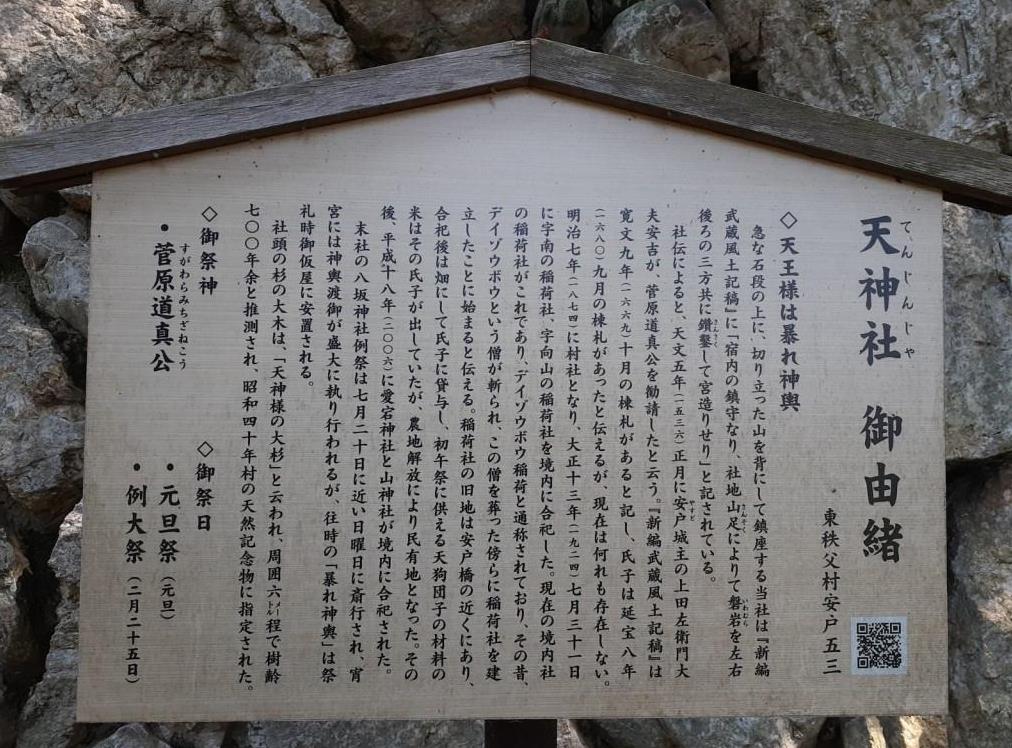 天神社　御由緒
てんじんじゃ
東秩父村安戸五三
◇天王様は暴れ神輿
急な石段の上に、切り立った山を背にして鎮座する当社は『新編
武蔵風土記稿』に「宿内の鎮守なり、社地山足によりて磐岩を左右
さんそく
いわむら
後ろの三方共に鑽鑿して宮造りせり」と記されている。
さんさく
社伝によると、天文五年（一五三六）正月に安戸城主の上田左衛門大
やすど
夫安吉が、菅原道真公を勧請したと云う。『新編武蔵風土記稿』は
寛文九年（一六六九）十月の棟札があると記し、氏子は延宝八年
（一六八〇）九月の棟札があったと伝えるが、現在は何れも存在しない。
明治七年（一八七四）に村社となり、大正十三年（一九二四）七月三十一日
に字南の稲荷社、字向山の稲荷社を境内に合祀した。現在の境内社
の稲荷社がこれであり、デイゾウボウ稲荷と通称されており、その昔、
デイゾウボウという僧が斬られ、この僧を葬った傍らに稲荷社を建
立したことに始まると伝える。稲荷社の旧地は安戸橋の近くにあり、
合祀後は畑にして氏子に貸与し、初午祭に供える天狗団子の材料の
米はその氏子が出していたが、農地解放により民有地となった。その
後、平成十八年（二〇〇六）に愛宕神社と山神社が境内に合祀された。
末社の八坂神社例祭は七月二十日に近い日曜日に斎行され、宵
宮には神輿渡御が盛大に執り行われるが、往時の「暴れ神輿」は祭
礼時御仮屋に安置される。
社頭の杉の大木は、「天神様の大杉」と云われ、周囲六㍍程で樹齢
七〇〇年余と推測され、昭和四十年村の天然記念物に指定された。
◇御祭神
・菅原道真公
すがわらみちざねこう
◇御祭日
・元旦祭（元旦）
・例大祭（二月二十五日）